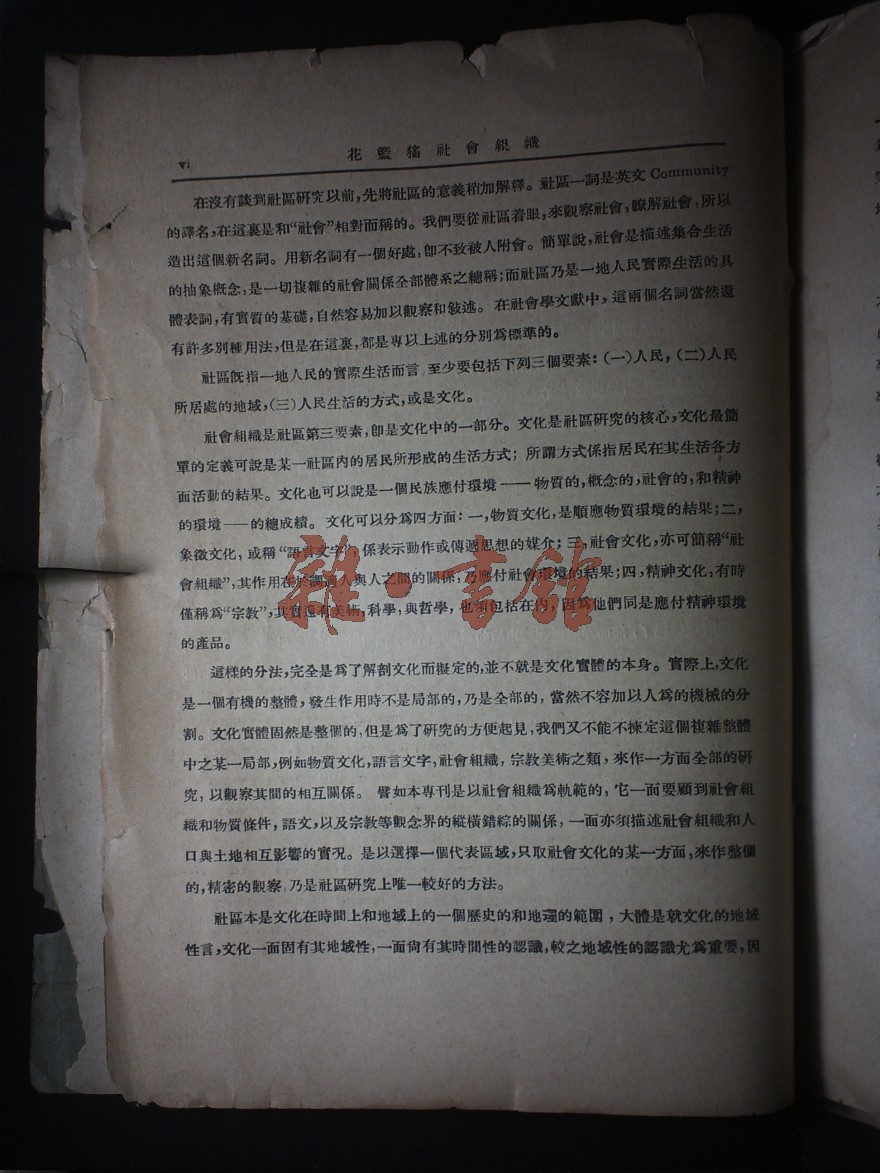 vi
花籃猺社會組織
在沒有談到社區硏究以前,先將社區的意義稍加解釋。社區一詞是英文 Community
的譯名,在這裏是和“社會”相對而稱的。我們要從社區着眼,來觀察社會,瞭解社會,所以
造出這個新名詞。用新名詞有一個好處,卽不致被人附會。簡單說,社會是描述集合生活
的抽象槪念,是一切複雜的社會關係全部體系之總稱;而社區乃是一地人民實際生活的具
體表詞,有實質的基礎,自然容易加以觀察和敍述。在社會學文獻中,這兩個名詞當然還
有許多別種用法,但是在這裏,都是專以上述的分別爲標準的。
社區旣指一地人民的實際生活而言,至少要包括下列三個要素:(一)人民,(二)人民
所居處的地域,(三)人民生活的方式,或是文化。
社會組織是社區第三要素,卽是文化中的一部分。文化是社區硏究的核心,文化最簡
單的定義可說是某一社區內的居民所形成的生活方式;所謂方式係指居民在其生活各方
面活動的結果。文化也可以說是一個民族應付環境——物質的,槪念的,社會的,和精神
的環境——的總成績。文化可以分爲四方面:一,物質文化,是順應物質環境的結果;二,
象徵文化,或稱“語言文字”,係表示動作或傳遞思想的媒介;三,社會文化,亦可簡稱“社
會組織”,其作用在於調適人與人之間的關係,乃應付社會環境的結果;四,精神文化,有時
僅稱爲“宗教”,其實還有美術,科學,與哲學,也須包括在內,因爲他們同是應付精神環境
的產品。
這樣的分法,完全是爲了解剖文化而擬定的,並不就是文化實體的本身。實際上,文化
是一個有機的整體,發生作用時不是局部的,乃是全部的,當然不容加以人爲的機械的分
割。文化實體固然是整個的,但是爲了硏究的方便起見,我們又不能不揀定這個複雜整體
中之某一局部,例如物質文化,語言文字,社會組織,宗教美術之類,來作一方面全部的硏
究,以觀察其間的相互關係。譬如本專刊是以社會組織爲軌範的,它一面要顧到社會組
織和物質條件,語文,以及宗教等觀念界的縱橫錯綜的關係,一面亦須描述社會組織和人
口與土地相互影響的實況。是以選擇一個代表區域,只取社會文化的某一方面,來作整個
的,精密的觀察,乃是社區硏究上唯一較好的方法。
社區本是文化在時間上和地域上的一個歷史的和地理的範圍,大體是就文化的地域
性言,文化一面固有其地域性,一面尙有其時間性的認識,較之地域性的認識尤爲重要,因
雜·書館